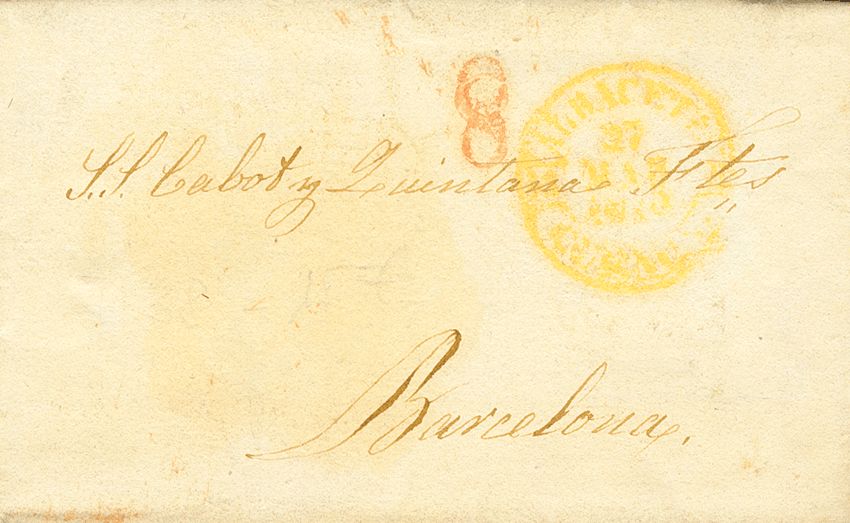 8
ALBACETE
27
MAR
S.S. Cabot y Quintana Ftes
Barcelona.